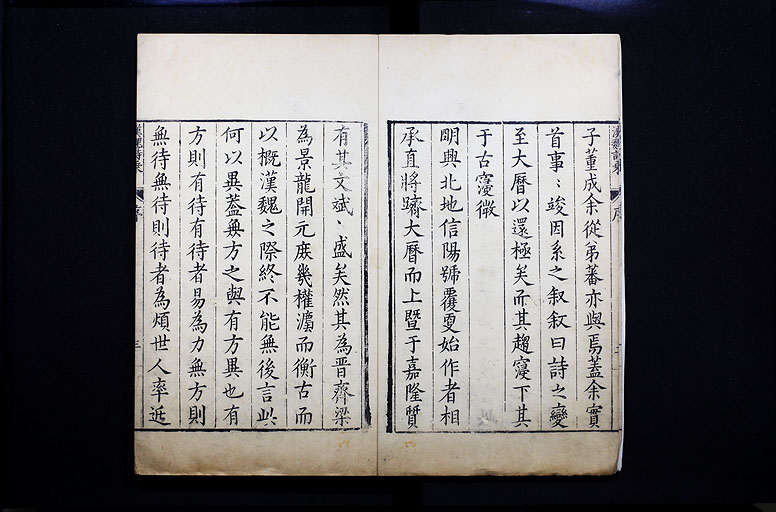 子董成余從弟蕃亦與焉蓋余實
首事︰竣因系之叙叙曰詩之變
至大曆以還極矣而其趨寖下其
于古寖微
明興北地信陽號覆夏始作者相
承直將躋大曆而上暨于嘉隆質
有其文斌﹅盛矣然其為晋齊梁
為景龍開元庶幾權瀛而衡古而
以概漢魏之際終不能無後言此
何以異葢無方之與有方異也有
方則有待有待者易為力無方則
無待無待則待者為煩世人率近
漢魏詩乗
序
三